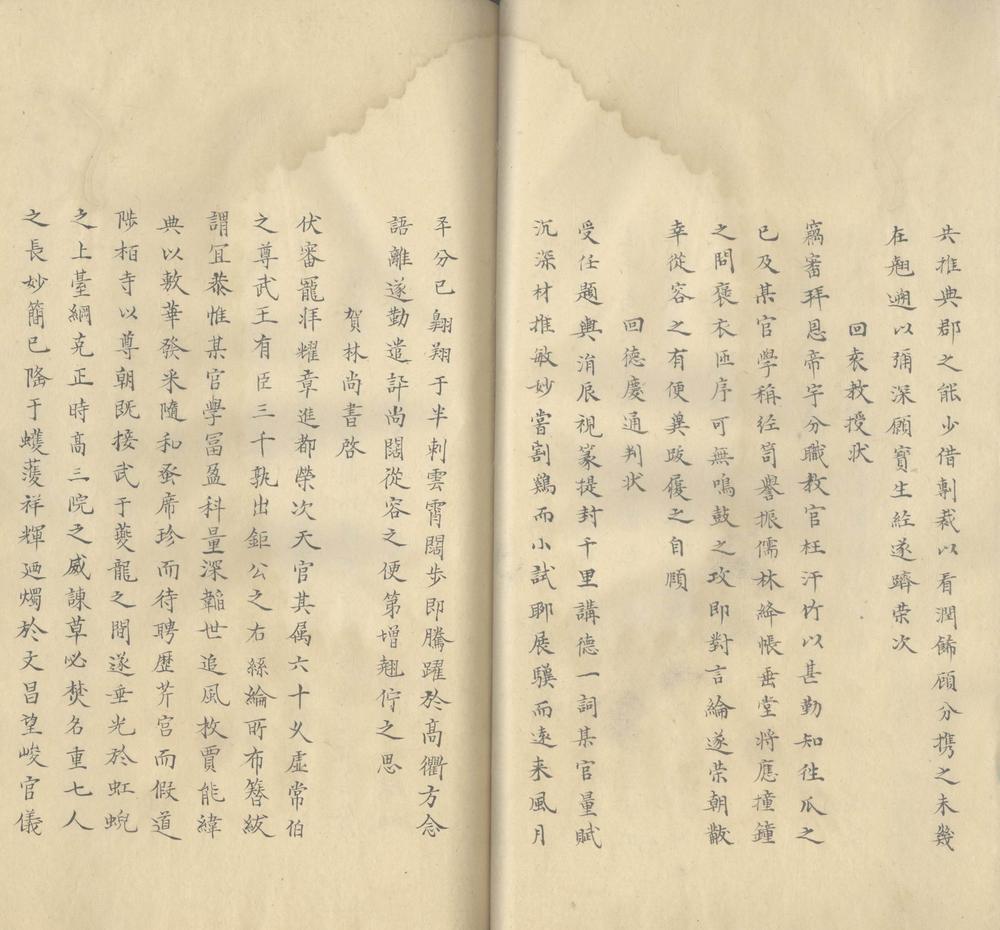 共推典郡之能少借剸裁以看潤餙顧分携之未幾
在翹遡以弥深願寳生経遂躋荣次
回袁教授状
竊審拜恩帝宇分職教官枉汗竹以甚勤知徃爪之
已及某官學稱经笥譽振儒林絳帳垂堂将應撞鐘
之問褒衣匝序可無鳴鼓之攻即對言綸遂荣朝散
幸從容之有便奠跋履之自順
回德慶通判状
受任題輿消辰視篆提封千里講德一詞某官量賦
沉深材推敏妙嘗割鷄而小試聊展驥而遠来風月
平分已翺翔于半刺雲霄闊步即騰躍於髙衢方念
語離遂勤遣訊尚闊從容之便第增翹佇之思
賀林尚書啓
伏審寵拜耀章進都榮次天官其属六十乂虚常伯
之尊武王有臣三千孰出鉅公之右絲綸所布簪紱
謂宜恭惟某官學冨盈科量深韜世追風枚賈能緯
典以敷華發采隨和蚤席珍而待聘歴芹宫而假道
陟栢寺以尊朝既接武于夔龍之間遂垂光於虹蜺
之上臺綱克正時髙三院之威諫草必焚名重七人
之長妙簡已隆于蠖濩祥輝廼燭於文昌望峻官儀